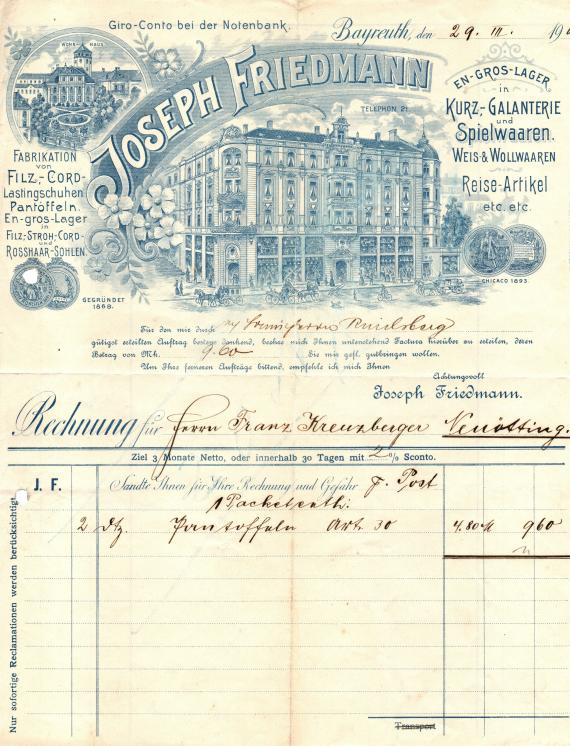 Giro-Conto bei der Notenbank.
Bayreuth, den 29. III. 19
WOHNHAUS
JOSEPH FRIEDMANN
TELEPHON 21.
FABRIKATION
von
FILZ-, CORD-
Lastingschuhen
Pantoffeln.
En-gros-Lager
in
FILZ-, STROH-, CORD-
und
ROSSHAAR-SOHLEN.
GEGRÜNDET
1868.
EN-GROS-LAGER
in
KURZ-, GALANTERIE
und
Spielwaaren.
WEIS- & WOLLWAAREN
Reise-Artikel
etc. etc.
CHICAGO 1893.
Für den mir durch
gütigst erteilten Auftrag bestens dankend, beehre mich Ihnen untenstehend Factura hierüber zu erteilen, deren
Betrag von Mk. 9.60 Sie mir gefl. gutbringen wollen.
Um Ihre ferneren Aufträge bittend, empfehle ich mich Ihnen
Achtungsvoll
Joseph Friedmann.
Rechnung für Herrn Franz Kreuzberger Neuötting.
Ziel 3 Monate Netto, oder innerhalb 30 Tagen mit 2% Sconto.
J. F. Sandte Ihnen für Ihre Rechnung und Gefahr p. Post
1 Packet enth.
2 Dtz. Pantoffeln Art. 30 4.80 M 9 60
Transport
Nur sofortige Reclamationen werden berücksichtigt.